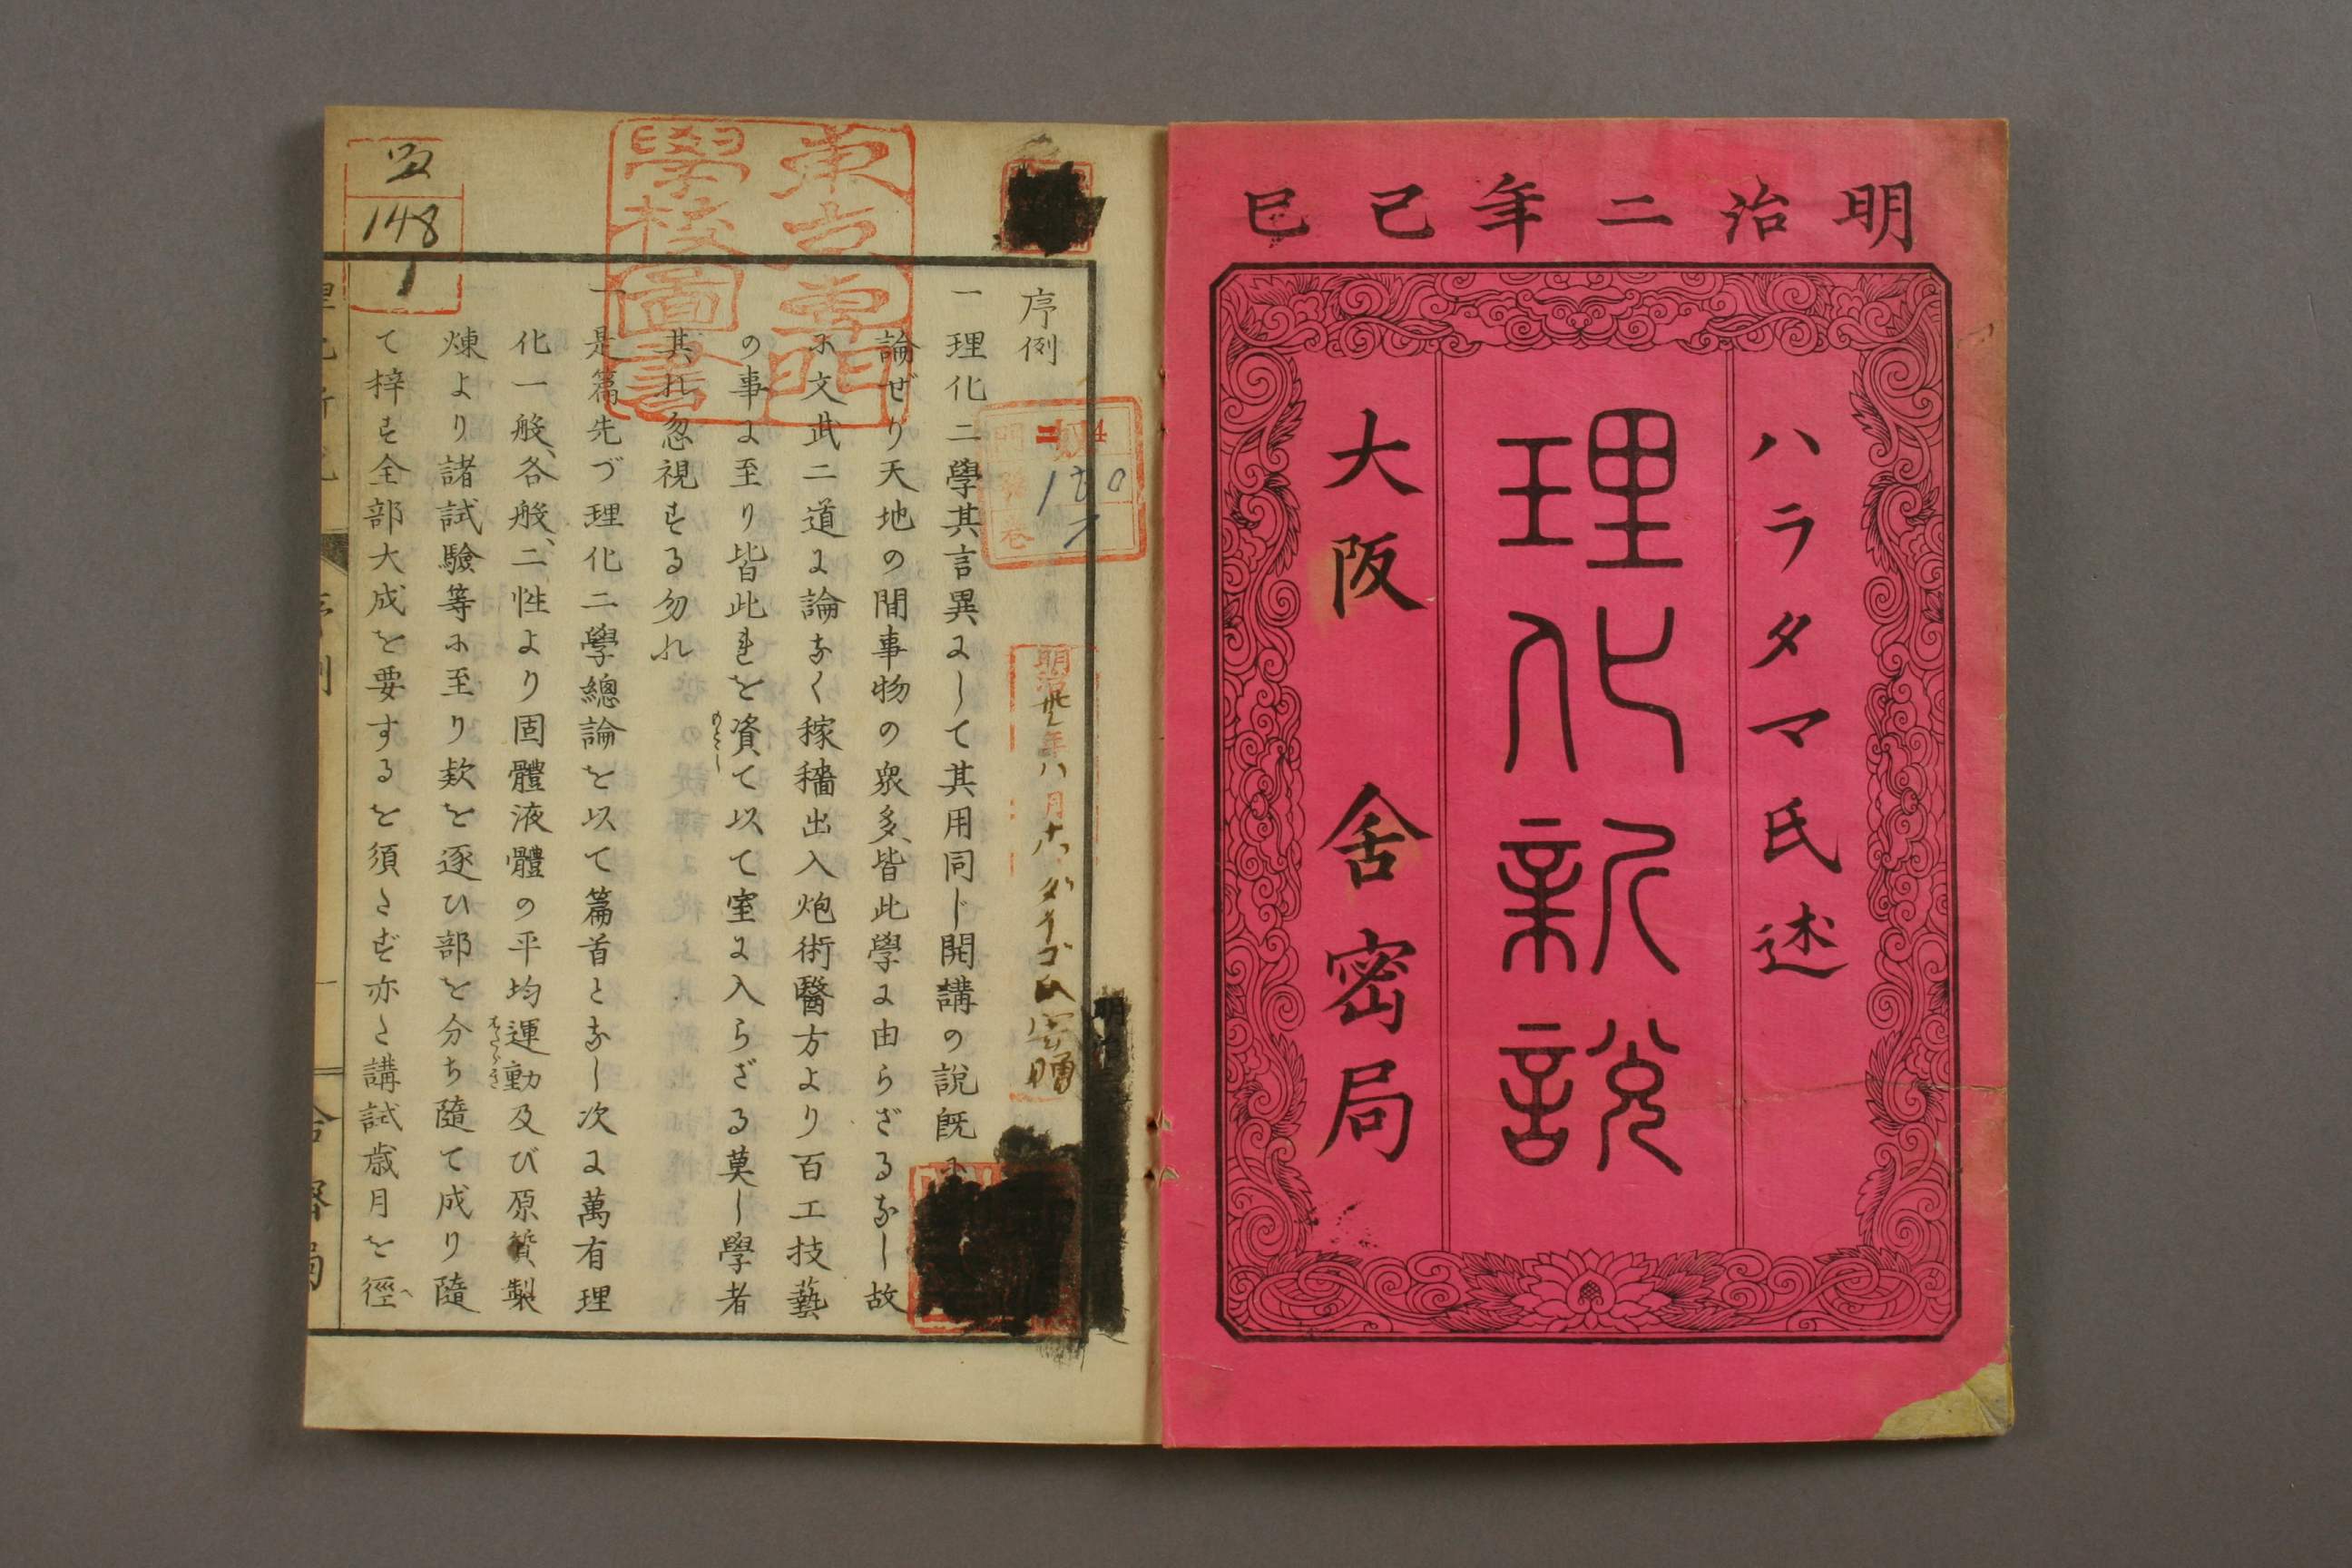 明治二年己巳
ハラタマ氏述
理化新説
大阪 舎密局
東京專門
學校圖書
序例
一理化二學其言異よして其用同じ開講の説既よ
論ぜり天地の間事物の衆多、皆此學よ由らざるなし故
ホ文武二道よ論なく稼穡出入炮術醫方より百工技藝
の事よ至り皆此れを資て以て室よ入らざる莫し學者
其れ忽視する勿れ
一是篇先づ理化二學總論を以て篇首となし次よ萬有理
化一般、各般、二性より固體液體の平均運動及び原質、製
煉より諸試驗等ホ至り欵を逐ひ部を分ち隨て成り隨
て梓す全部大成を要するを須たず亦た講試歳月を徑
148
1